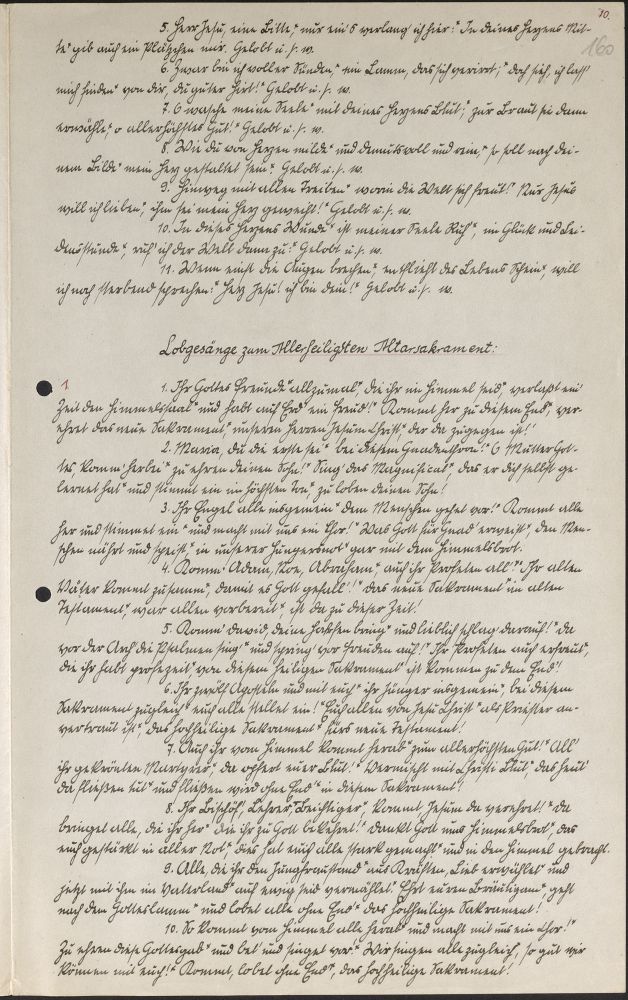 70.
160
5. Herr Jesu, eine Bitte,* nur ein's verlang ich hier:* In deines Herzens Mit-
te* gib auch ein Plätzchen mir. Gelobt u. s. w.
6. Zwar bin ich voller Sünden,* ein Lamm, das sich verirrt;* doch sieh, ich lass'
mich finden* von dir, du guter Hirt!* Gelobt u. s. w.
7. O wasche meine Seele* mit deines Herzens Blut;* zur Braut sei dann
erwählt,* o allerhöchstes Gut!* Gelobt u. s. w.
8. Wie du von Herzen milde* und demutsvoll und rein,* so soll nach dei-
nem Bilde* mein Herz gestaltet sein.* Gelobt u. s. w.
9. Hinweg mit allen Treiben* worin die Welt sich freut!* Nur Jesus
will ich lieben,* ihm sei mein Herz geweiht!* Gelobt u. s. w.
10. In dieses Herzens Wunde* ist meiner Seele Ruh*, im Glück und Lei-
densstunde,* ruf' ich der Welt dann zu:* Gelobt u. s. w.
11. Wenn einst die Augen brechen,* entflieht des Lebens Schein,* will
ich noch sterbend sprechen:* Herz Jesu! ich bin dein!* Gelobt u. s. w.
Lobgesänge zum Allerheiligsten Altarsakrament:
1.
1. Ihr Gottes Freunde* allzumal,* die ihr im Himmel seid,* verlaßt ein'
Zeit den Himmelssaal* und habt auf Erd' ein Freud!* Kommt her zu diesem End,* ver-
ehret das neue Sakrament,* unseren Herren Jesum Christ,* der da zugegen ist!
2. Maria, du die erste sei* bei diesem Gnadenthron!* O Mutter Got-
tes, komm' herbei* zu ehren deinen Sohn!* Sing' das Magnificat,* das er dich selbst ge-
lernet hat* und stimmt ein im höchsten Ton* zu loben deinen Sohn!
3. Ihr Engel alle insgemein* dem Menschen gehet vor!* Kommt alle
her und stimmet ein* und macht mit uns ein Chor!* Was Gott für Gnad' erweist,* den Men-
schen nährt und speist,* in unserer Hungersnot* gar mit dem Himmelsbrot.
4. Komm' Adam, Noe, Abraham,* auch ihr Profeten all'!* Ihr alten
Väter kommt zusamm',* damit es Gott gefall'!* das neue Sakrament* in alten
Testament,* war allen vorbereit',* ist da zu dieser Zeit!
5. Komm' David, deine Harfen bring'* und lieblich schlag' darauf!* da
vor der Arch die Psalmen sing'* und spring' vor Freuden auf!* Ihr Profeten auch erfreut,*
die ihr habt profezeit* von diesem heiligen Sakrament* ist kommen zu dem End'!
6. Ihr zwölf Aposteln und mit euch* ihr Jünger insgemein,* bei diesem
Sakrament zugleich* euch alle stellet ein!* Euch allen von Jesu Christ* als Priester an-
vertraut ist,* das hochheilige Sakrament* fürs neue Testament!
7. Auch ihr vom Himmel kommt herab* zum allerhöchsten Gut!* All'
ihr gekrönten Martyrer,* da opfert euer Blut!* Vermischt mit Christi Blut,* das heut'
da fließen tut* und fließen wird ohne End* in diesem Sakrament!
8. Ihr Bischöf', Lehrer,* Beichtiger,* kommt Jesum da verehret!* da
bringet alle, die ihr her* die ihr zu Gott bekehret!* dankt Gott ums Himmelsbrot,* das
euch gestärkt in aller Not,* dies hat euch alle stark gemacht* und in den Himmel gebracht.
9. Alle, die ihr den Jungfraustand* aus Keuschen, Lieb erwählet* und
jetzt mit ihm im Vaterland* auf ewig seid vermählet.* Ehrt euren Bräutigam,* geht
nach dem Gotteslamm* und lobet alle ohne End* das hochheilige Sakrament!
10. So kommt vom Himmel alle herab* und macht mit uns ein Chor!*
Zu ehren diese Gottesgab* und bet' und singet vor.* Wir singen alle zugleich, so gut wir
können mit euch!* Kommt, lobet ohne End,* das hochheilige Sakrament!